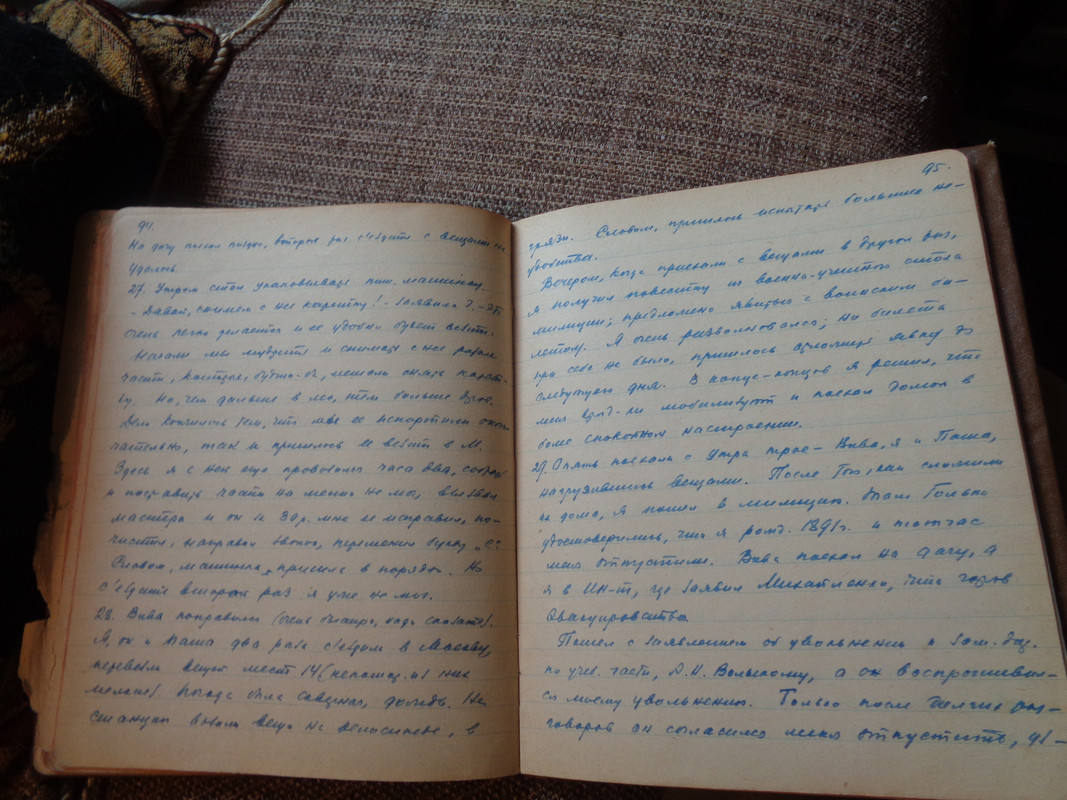 94.
На дачу попал поздно, второй раз съездить с вещами не
удалось.
27. Утром стал упаковывать пиш. машинку.
- Давай, снимем с нее каретку! - заявила Г. - Это
очень легко делается и ее удобно будет везти.
Начали мы мудрить и снимать с нее разные
части, которые, будто-бы, мешали снять карет-
ку. Но, чем дальше в лес, тем больше дров.
Дело кончилось тем, что мы ее испортили окон-
чательно, так и пришлось ее везти в М.
Здесь я с ней еще провозился часа два,
и поставить части на место не мог, вызвал
мастера и он за 30 р. мне ее исправил, по-
чистил, направил звонок, переменил букву „е“.
Словом, машинка пришла в порядок. Но
съездить второй раз я уже не мог.
28. Вива поправился (очень быстро, надо сказать).
Я, он и Паша два раза съездили в Москву,
перевезли вещей мест 14 ( из них
мелочь). Погода была скверная, дождь. На
станцию возили вещи на велосипеде, в
95.
грязи. Словом, пришлось испытать большие не-
удобства.
Вечером, когда приехали с вещами в другой раз,
я получил повестку из военно-учетного стола
милиции; предложено явиться с воинским би-
летом. Я очень разволновался; но билета
при себе не было, пришлось отложить явку до
следующего дня. В конце-концов я решил, что
меня вряд-ли мобилизуют и поехал домой в
более спокойном настроении.
29. Опять поехали с утра трое - Вива, я и Паша,
нагрузившись вещами. После того, как сложили
их дома, я пошел в милицию. Там только
удостоверились, что я рожд. 1891 г. и тотчас
меня отпустили. Вива поехал на дачу, а
я в Ин-т, где заявил Михайленко, что готов
эвакуироваться.
Пошел с заявлением об увольнении к зам. дир.
по учеб. части, А. Н. Волынскому, а он воспротивил-
ся моему увольнению. Только после долгих раз-
говоров он согласился меня отпустить, уз-